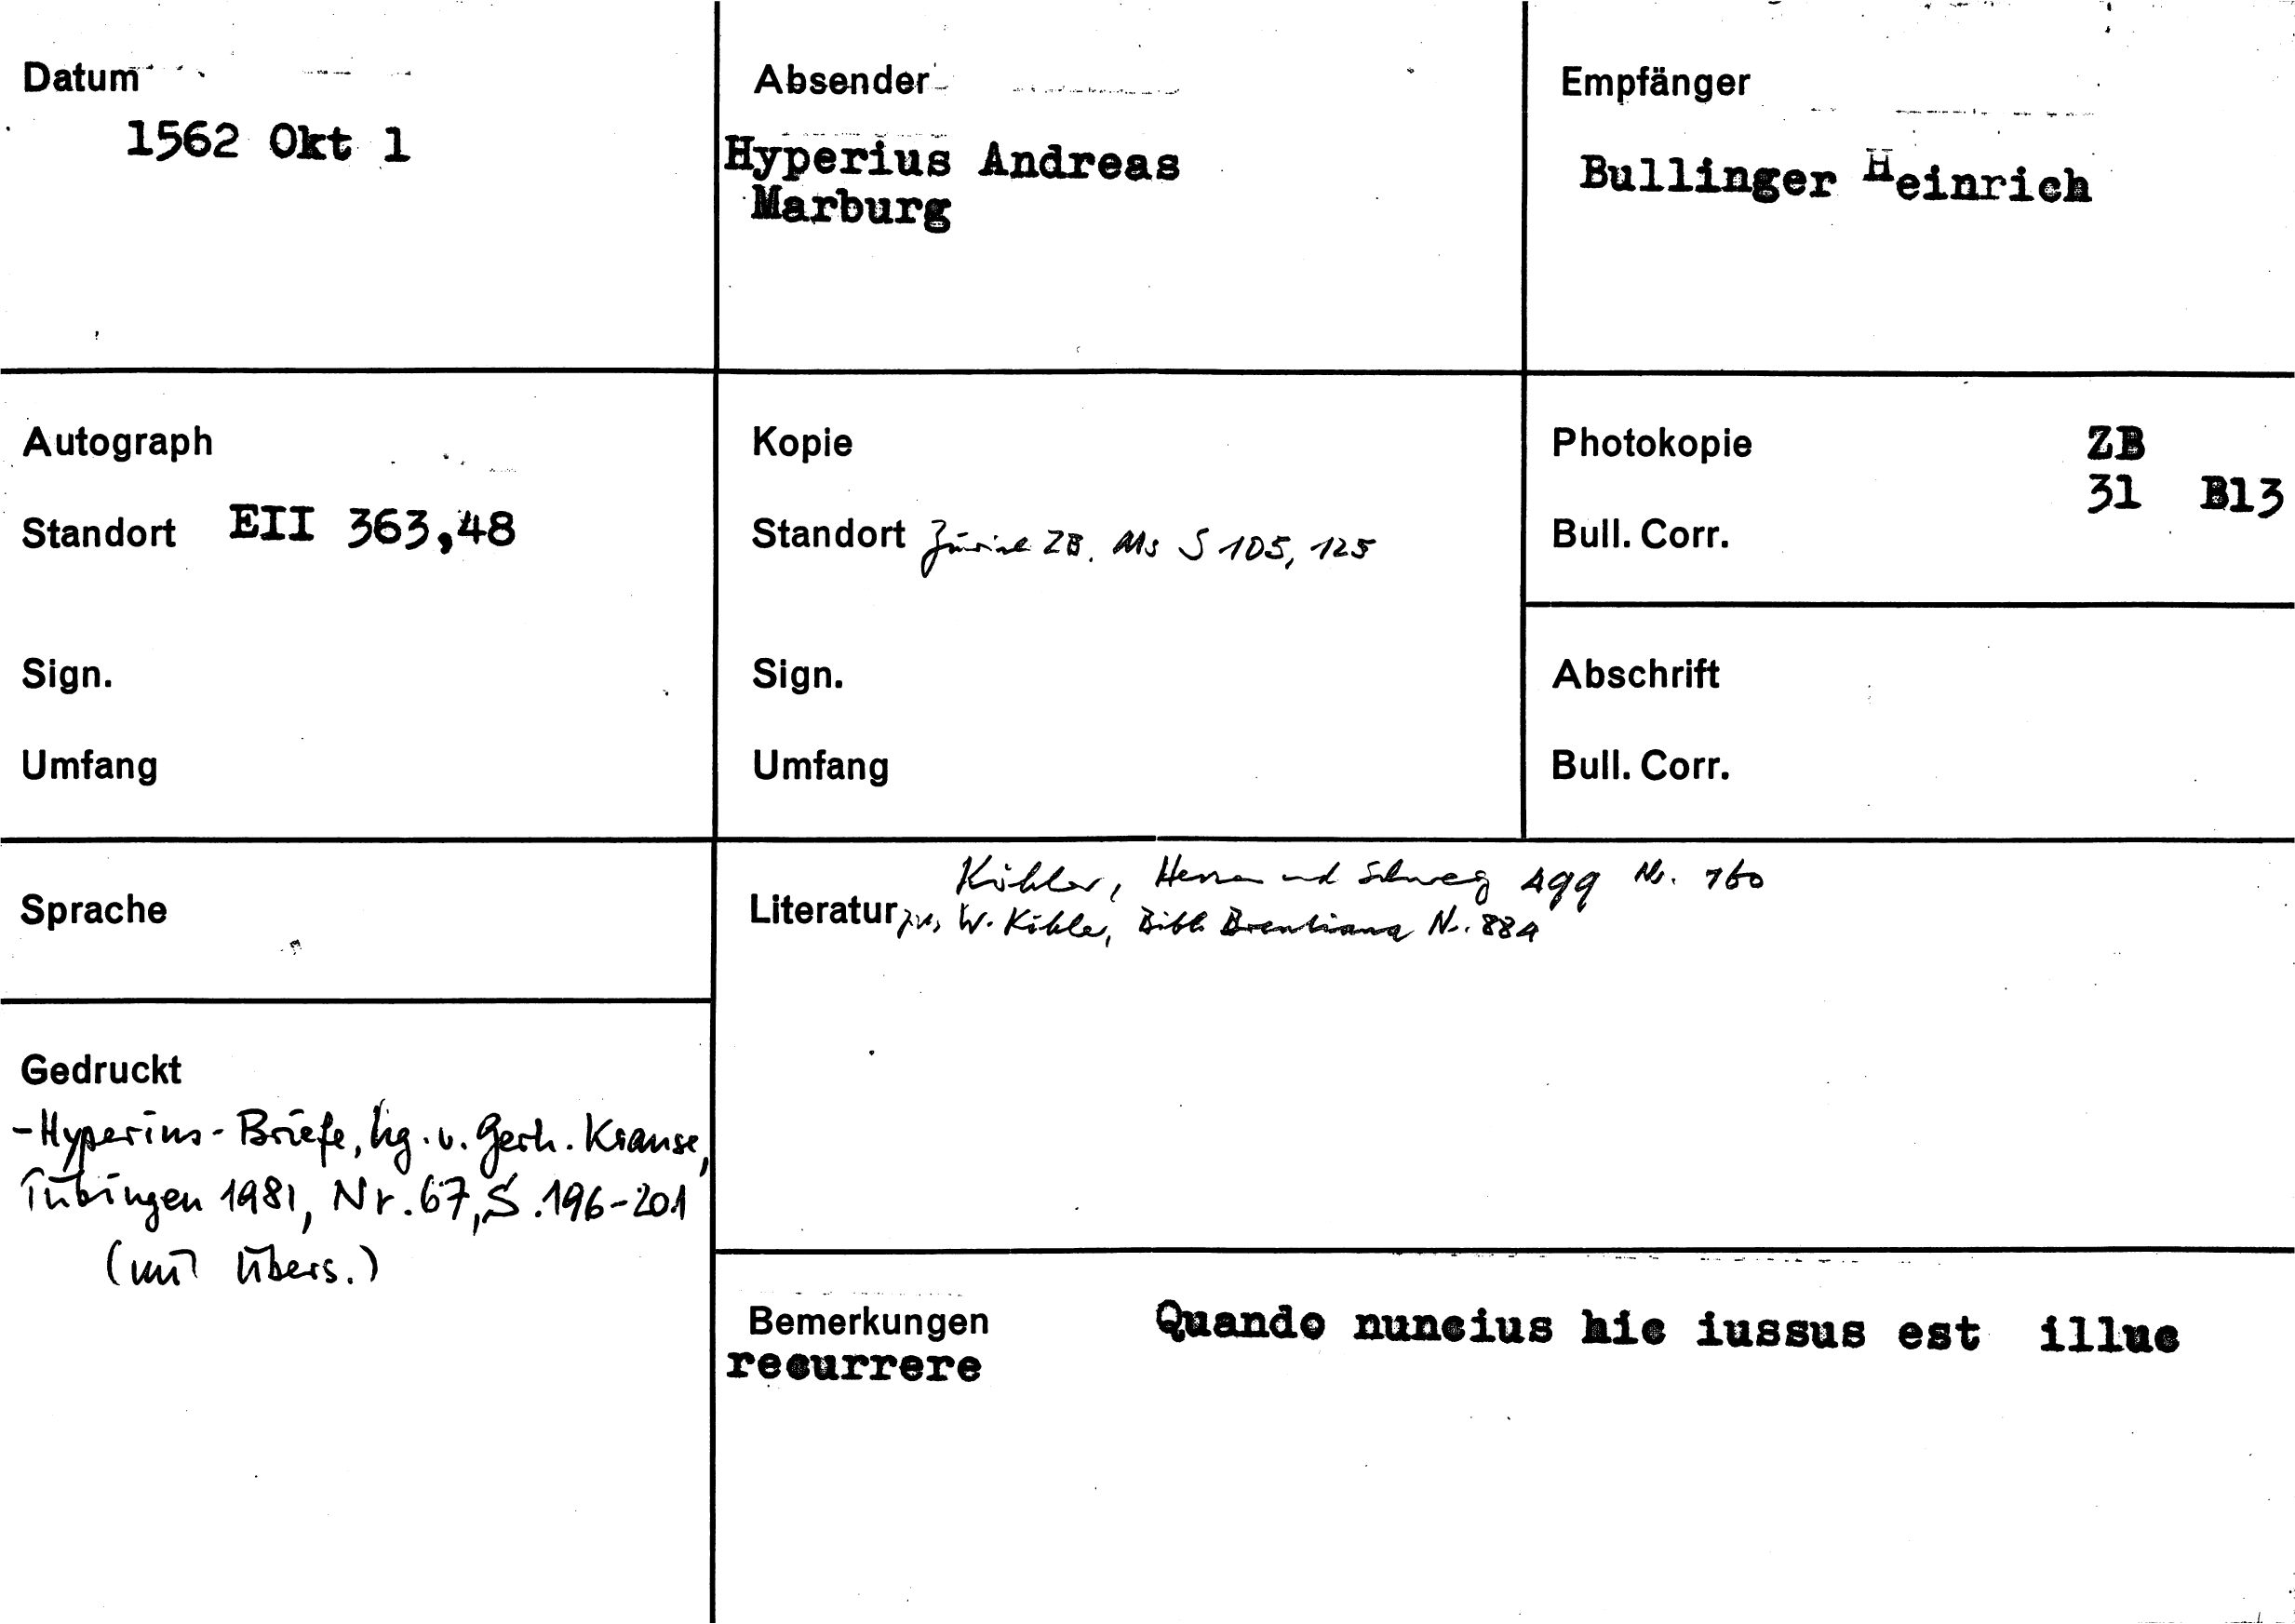 Datum
1562 Okt 1
Absender
Hyperius Andreas
Marburg
Empfänger
Bullinger Heinrich
Autograph
Standort EII 363,48
Sign.
Umfang
Kopie
Standort Zürich ZB. Ms S 105, 125
Sign.
Umfang
Photokopie ZB
31 B13
Bull. Corr.
Abschrift
Bull. Corr.
Sprache
Köhler, Hessen und Schweiz Nr. 160
Literatur W. Köhler, Bibl Brentiana Nr. 884
Gedruckt
-Hyperius-Briefe, hg. v. Gerh. Krause,
Tübingen 1981, Nr. 67, S. 196-201
(mit Übers.)
Bemerkungen Quando nuncius hic iussus est illuc
recurrere